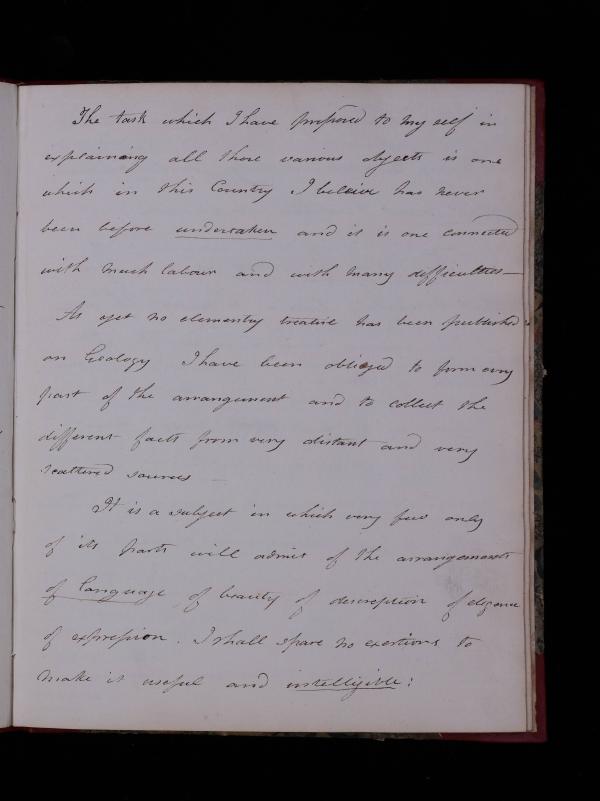 The task which I have proposed to my self in
explaining all these various objects is one
which in this Country I believe has never
been before undertaken and it is one connected
with much labour and with many difficulties —
As yet no elementry treatise has been published
on Geology I have been obliged to form every
part of the arrangement and to collect the
different facts from very distant and very
scattered sources —
It is a subject in which very few only
of its parts will admit of the arrangements
of language of beauty of description of elegance
of expression. I shall spare no exertions to
make it useful and intelligible: